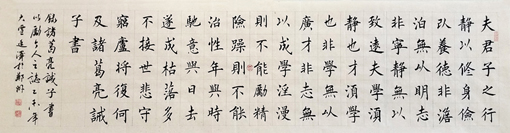 夫君子之行
静以修身儉
以養德非澹
泊無以明志
非寧静無以
致遠夫學湏
静也才湏學
也非學無以
廣才非志無
以成學淫漫
則不能勵精
險躁則不能
治性年與時
馳意與日去
遂成枯落多
不接世悲守
窮廬將復何
及諸葛亮誡
子書
録諸葛亮誡子書
以勵今人之志乙未年
大雪延濤於鄭州